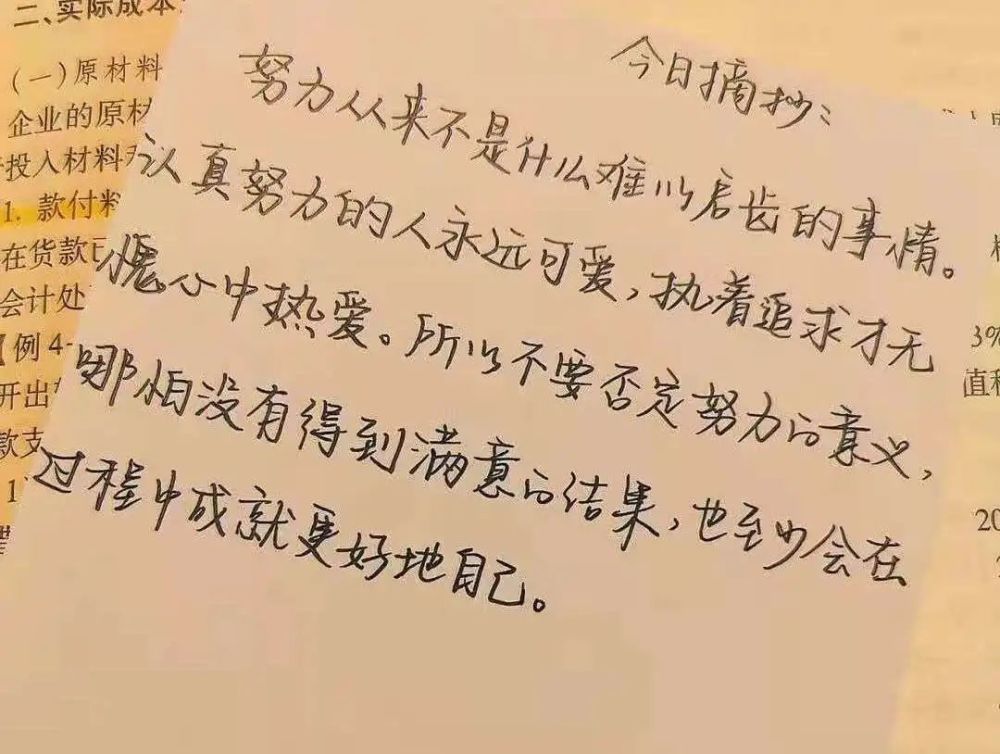 二、实际成本
(一)原材料
企业的原材
投入材料
1. 款付料
在货款已
会计处
【例 4-
开出
款支
今日摘抄:
努力从来不是什么难以启齿的事情。
认真努力的人永远可爱,执着追求才无
愧心中热爱。所以不要否定努力的意义,
哪怕没有得到满意的结果,也至少会在
过程中成就更好地自己。
3%
值税
20